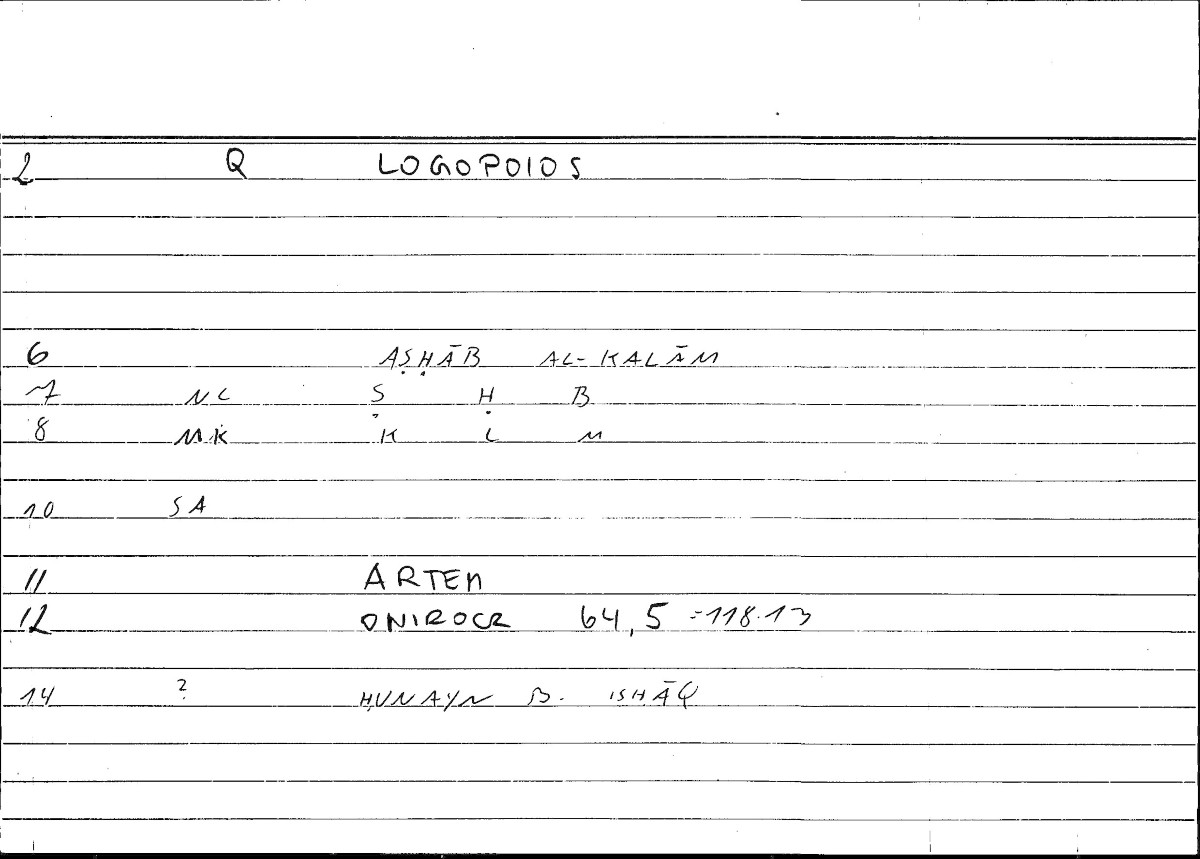 2 Q LOGOPOIOS
6 AṢḤĀB AL-KALĀM
7 NC Ṣ Ḥ B
8 MK K L M
10 SA
11 ARTEM
12 ONIROCR 64,5 =118.13
14 ? ḤUNAYN B. ISḤĀQ